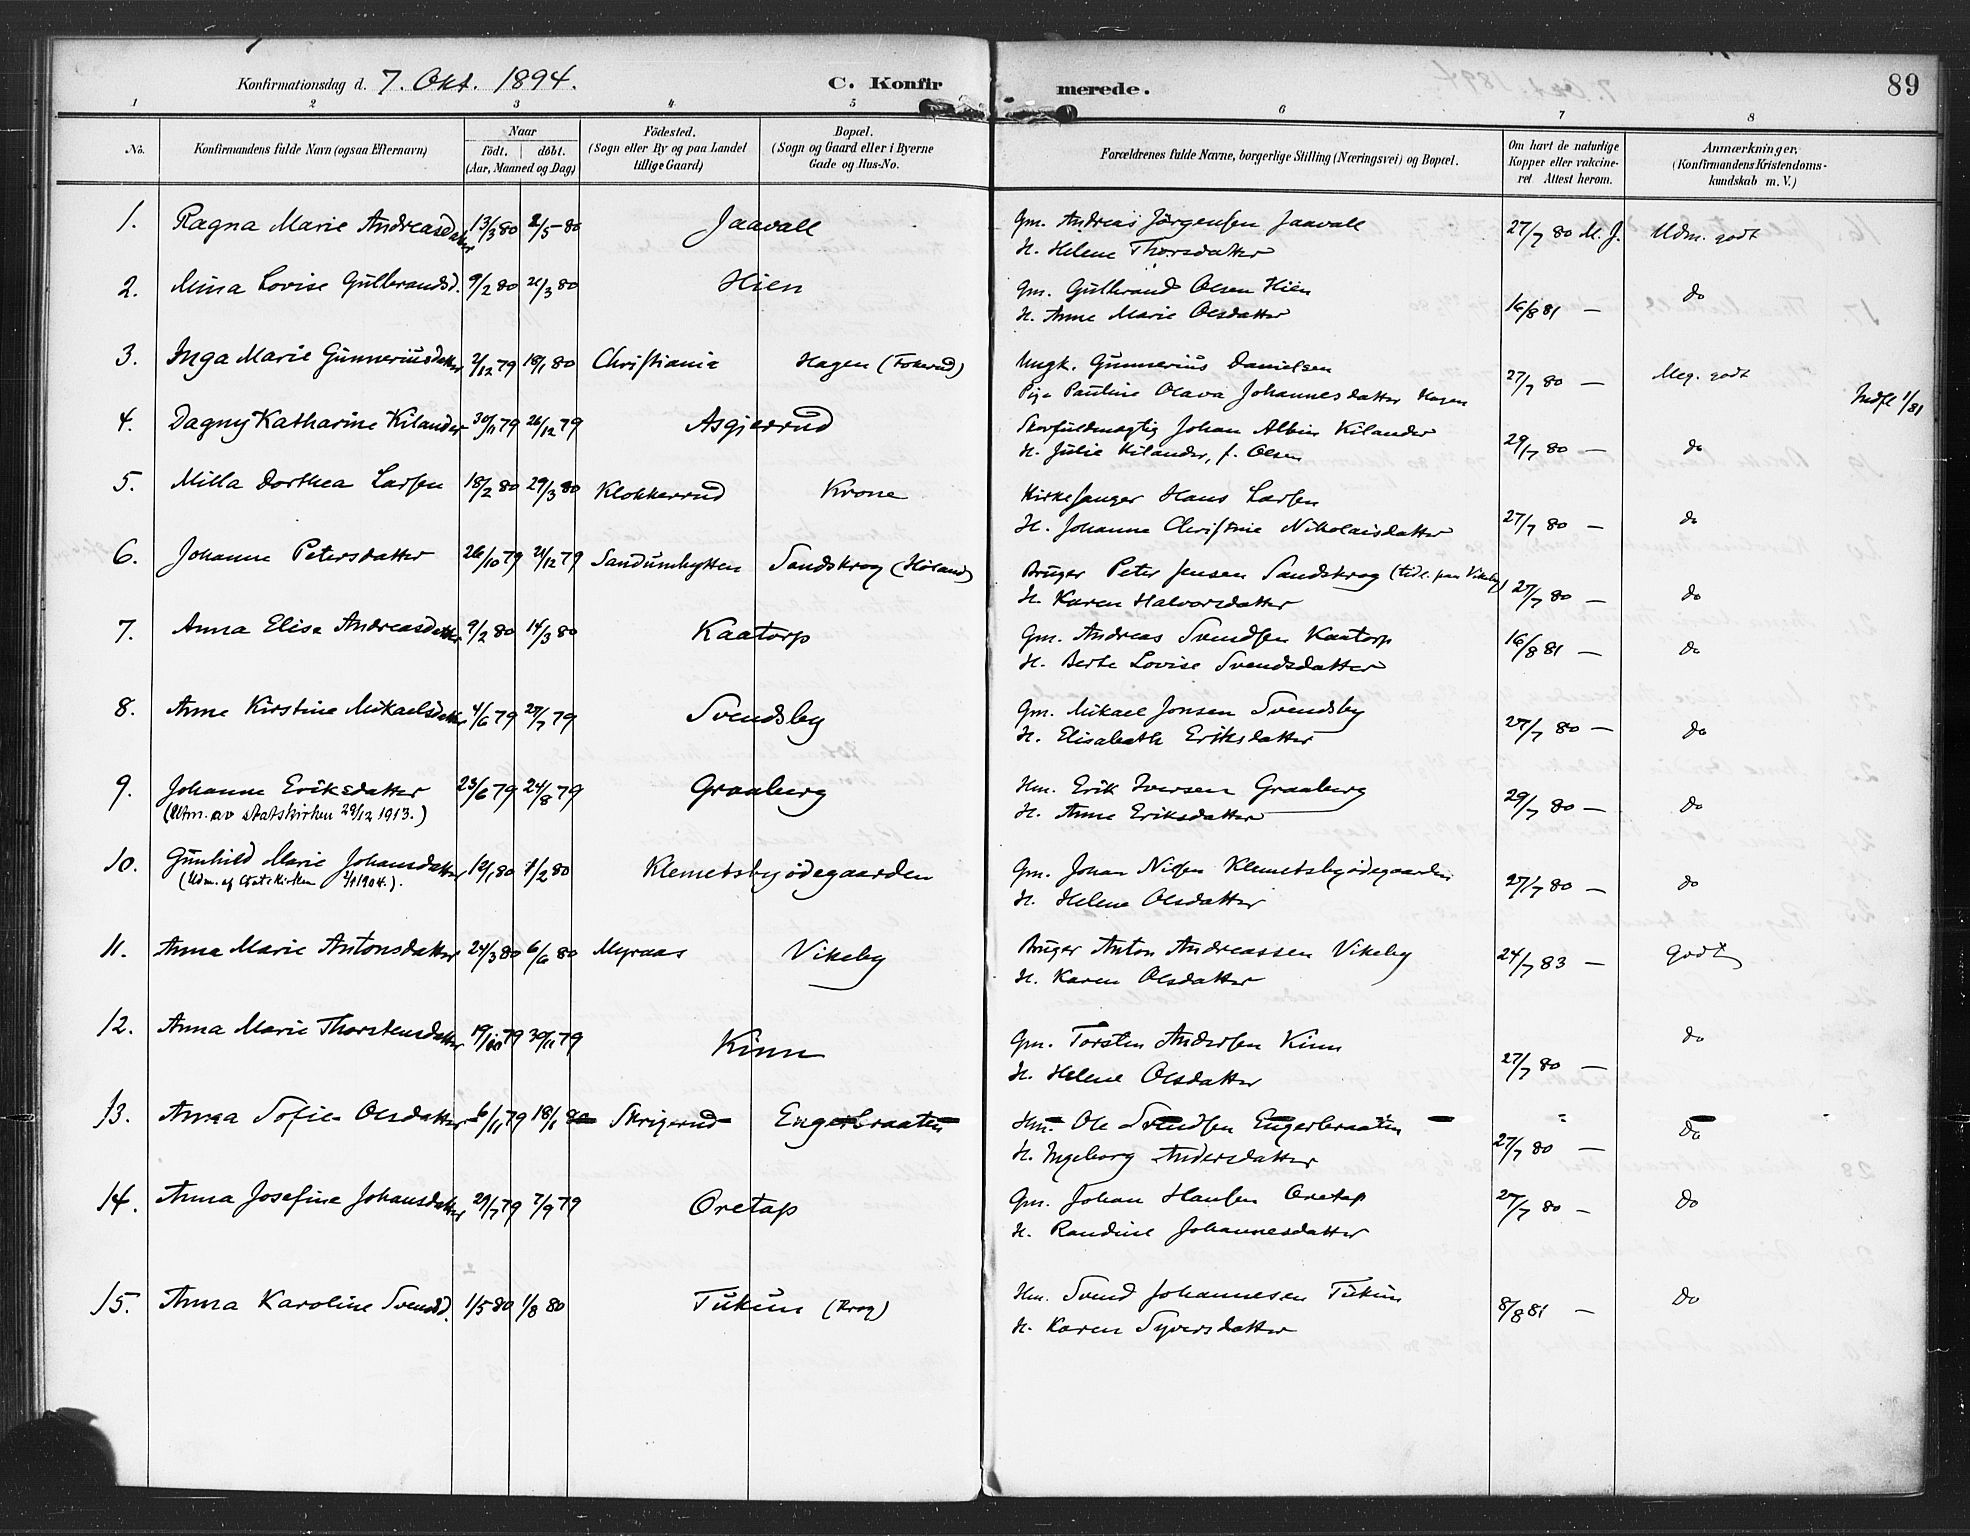 Konfirmationsdag d. 7. Okt. 1894. C. Konfirmerede. 89
1 2 3 4 5 6 7 8
No. Konfirmandens fulde Navn (ogsaa Efternavn) Naar födt. döbt. (Aar, Maaned og Dag) Födested. (Sogn eller By og paa Landet tillige Gaard) Bopæl. (Sogn og Gaard eller i Byerne Gade og Hus-No. Forældrenes fulde Navne, borgerlige Stilling (Næringsvei) og Bopæl. Om havt de naturlige Kopper eller vakcineret Attest herom. Anmærkninger, (Konfirmandens Kristendomskundskab m. V.)
1. Ragna Marie Andreasdatter 13/3 80 2/5 80 Jaavall Gm. Andreas Jörgensen Jaavall 27/7 80 M. J. Udm. godt
H. Helene Thorsdatter
2. Mina Lovise Gulbrandsd. 9/2 80 21/3 80 Hien Gm. Gulbrand Olsen Hien 16/8 81 — do
H. Anne Marie Olsdatter
3. Inga Marie Gunneriusdatter 2/12 79 18/1 80 Christiania Hagen (Fokerud) Ungk. Gunnerius Danielsen 27/7 80 — Meg. godt
Pige Pauline Olava Johannesdatter Hagen Indfl 1/81
4. Dagny Katharine Kilander 30/11 79 26/12 79 Asgjerrud Skovfuldmægtig Johan Albin Kilander 29/7 80 — do
H. Julie Kilander, f. Olsen
5. Milla Dorthea Larsen 18/2 80 29/3 80 Klokkerrud Krone Kirkesanger Hans Larsen 27/7 80 — do
H. Johanne Christine Nikolaisdatter
6. Johanne Petersdatter 26/10 79 21/12 79 Sandumhytten Sandskrog (Höland) Bruger Peter Jensen Sandskrog (tidl. paa Vikeby) 27/7 80 — do
H. Karen Halvorsdatter
7. Anna Elise Andreasdatter 9/2 80 14/3 80 Kaatorp Gm. Andreas Svendsen Kaatorp 16/8 81 — do
H. Berte Lovise Svendsdatter
8. Anne Kirstine Mikaelsdatter 4/6 79 27/7 79 Svendsby Gm. Mikael Jonsen Svendsby 27/7 80 — do
H. Elisabeth Eriksdatter
9. Johanne Eriksdatter 23/6 79 24/8 79 Graaberg Hm. Erik Iversen Graaberg 29/7 80 — do
(Utm. av statskirken 29/12 1913.) H. Anne Eriksdatter
10. Gunhild Marie Johansdatter 12/1 80 1/2 80 Klemetsbyödegaarden Gm. Johan Nilsen Klemetsbyödegaarden 27/7 80 — do
(Udm. af Statskirken 2/1 1904.). H. Helene Olsdatter
11. Anna Marie Antonsdatter 24/3 80 6/6 80 Myraas Vikeby Bruger Anton Andreassen Vikeby 24/7 83 — Godt
H. Karen Olsdatter
12. Anna Marie Thorstensdatter 19/10 79 30/11 79 Kinn Gm. Torsten Andersen Kinn 27/7 80 — do
H. Helene Olsdatter
13. Anna Sofie Olsdatter 6/11 79 18/1 80 Skrigerud Engerbraaten Hm. Ole Svendsen Engerbraaten 27/7 80 — Do
H. Ingeborg Andersdatter
14. Anna Josefine Johansdatter 29/7 79 7/9 79 Oretap Gm. Johan Hansen Oretap 27/7 80 — Do
H. Randine Johannesdatter
15. Anna Karoline Svendsd. 1/5 80 1/8 80 Tukun (Krog) Hm. Svend Johannesen Tukun 8/8 81 — Do
H. Karen Syversdatter